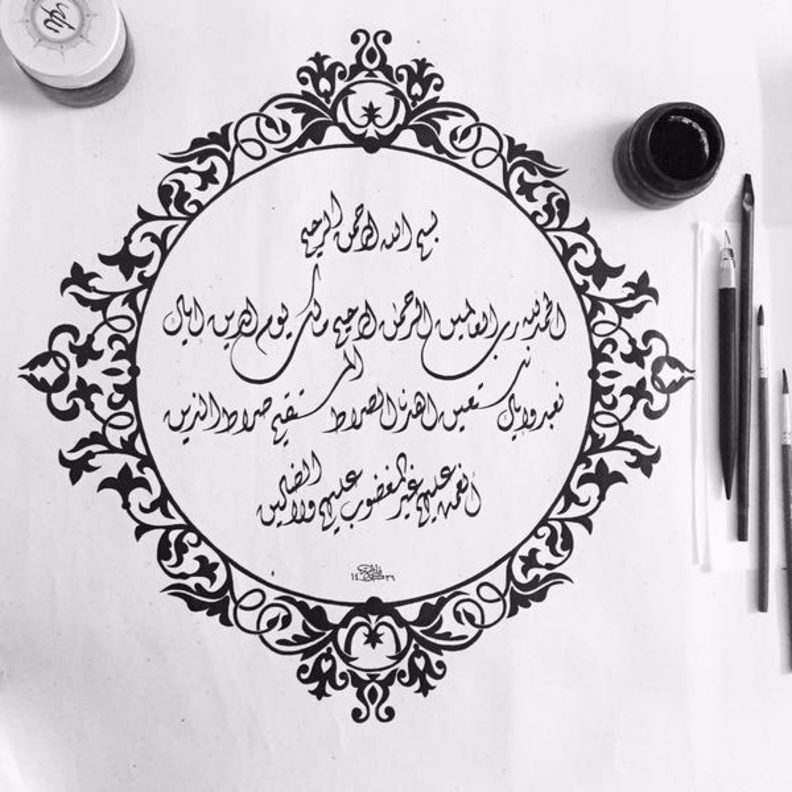 بسم الله الرحمن الرحيم
الحمدلله رب العالمين الرحمن الرحيم مالك يوم الدين اياك
نعبد واياك نستعين اهدنا الصراط المستقيم صراط الذين
أنعمت عليهم غير المغضوب عليهم ولا الضالين